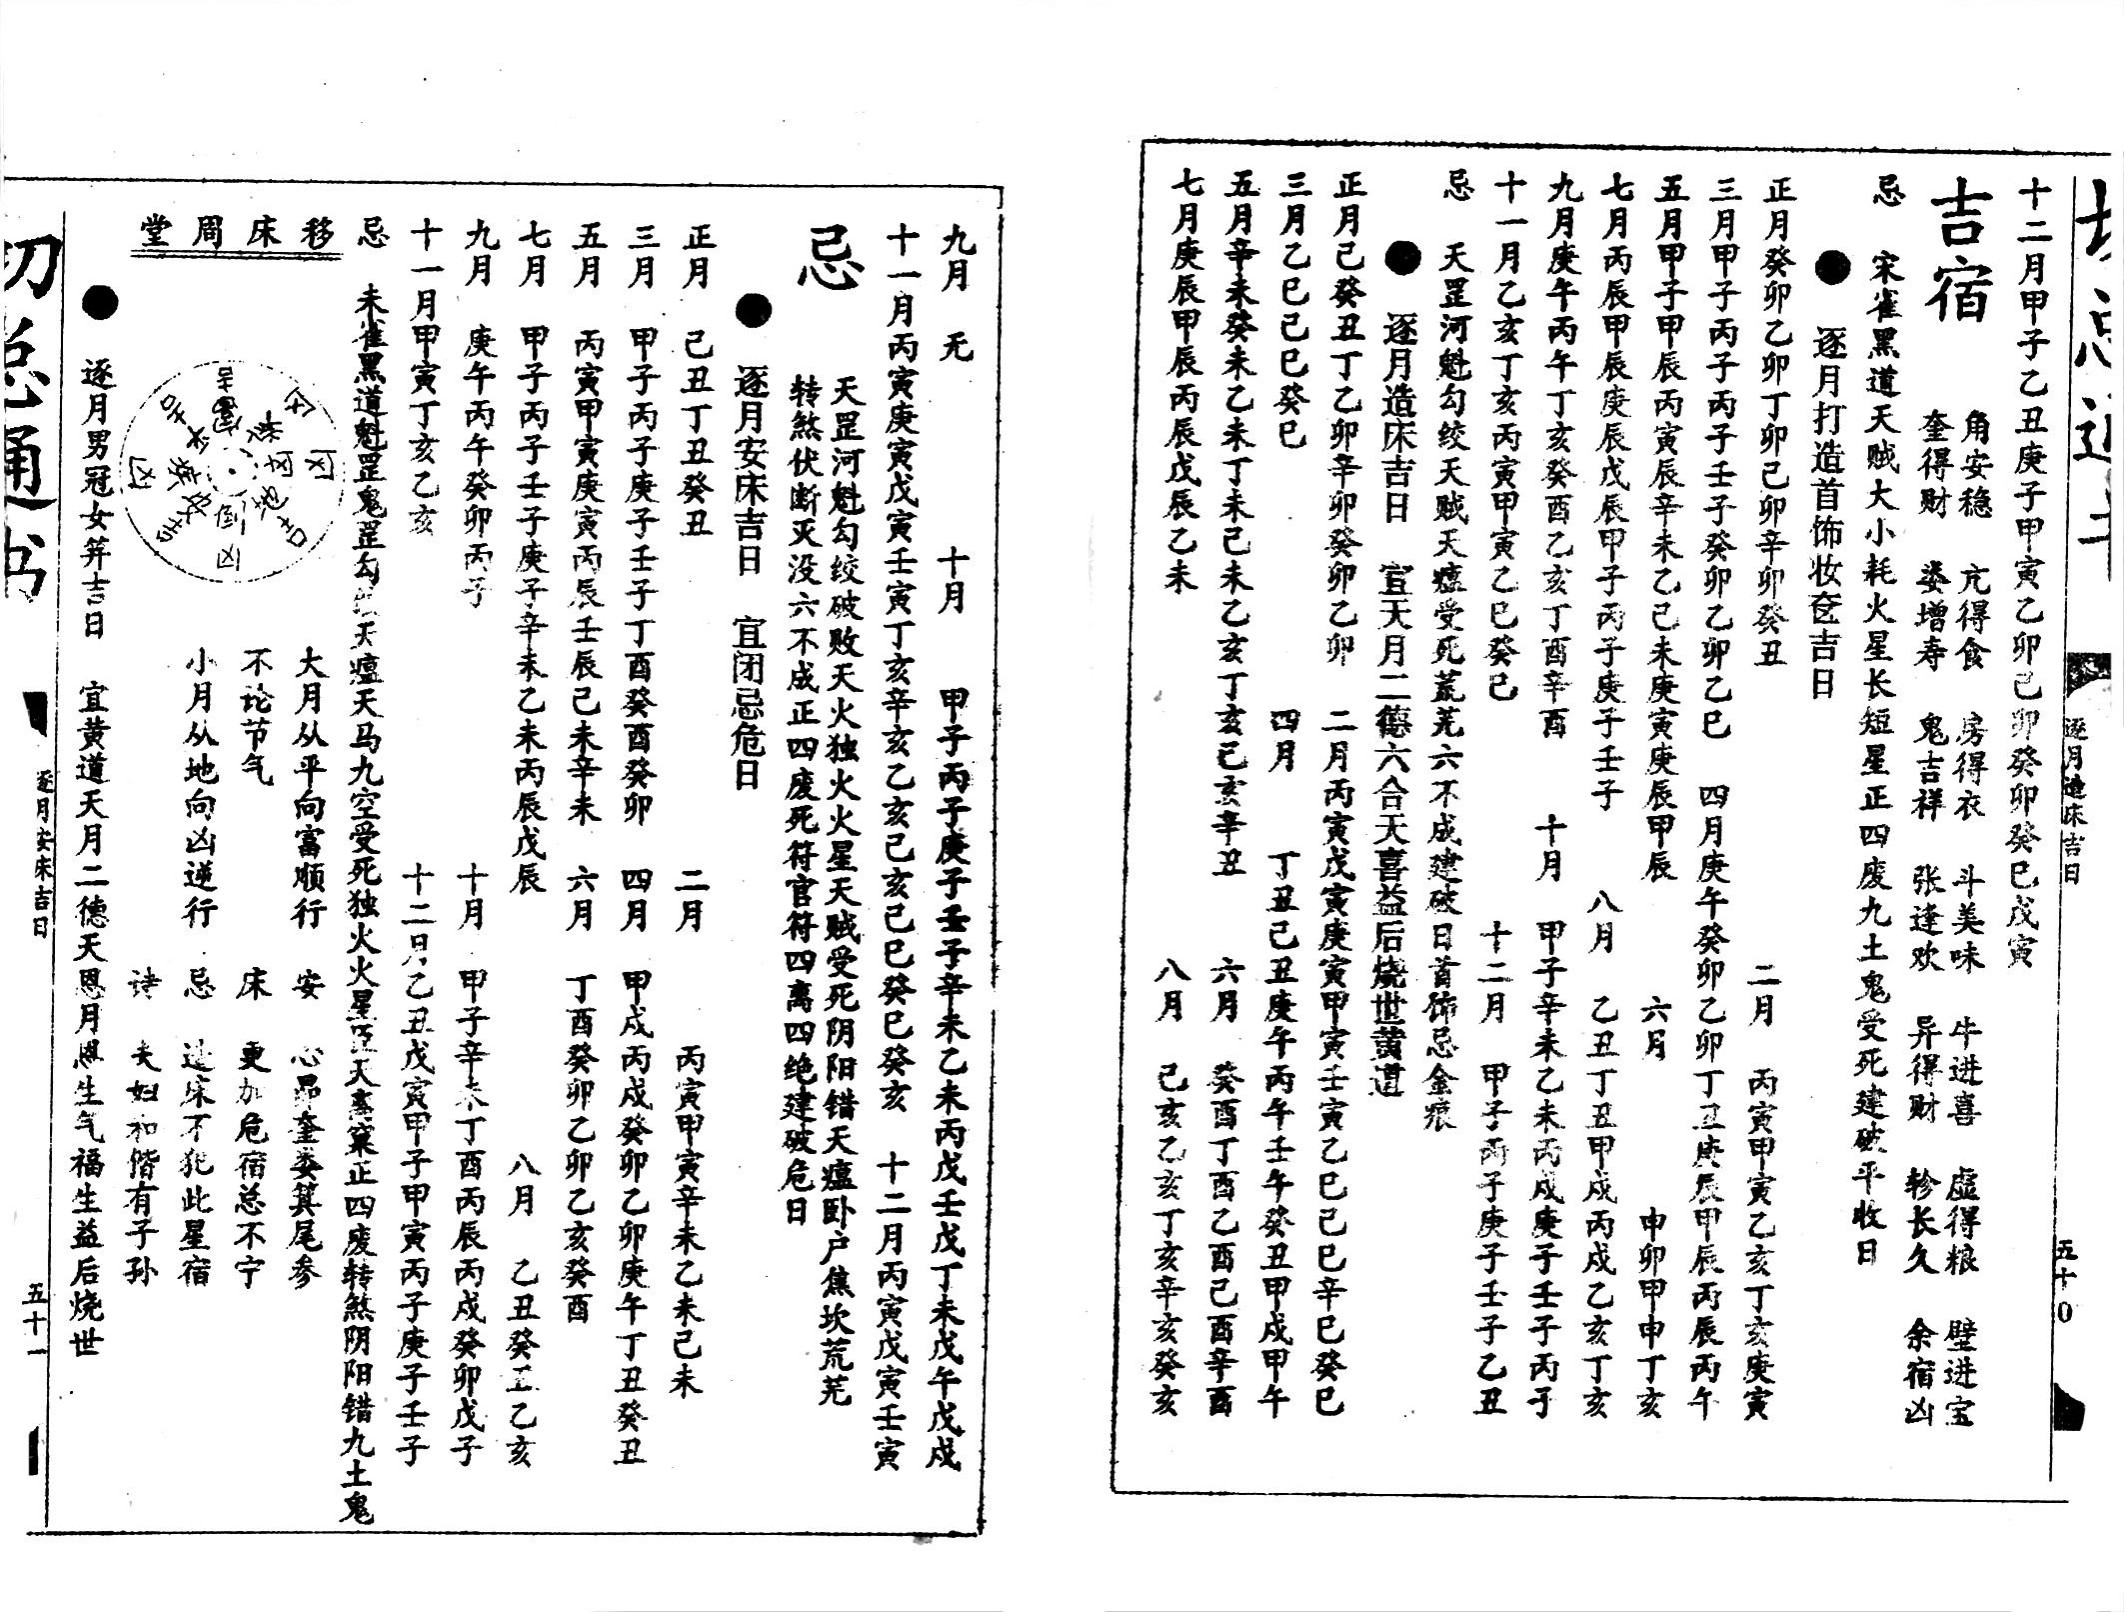 十二月甲子乙丑庚子甲寅乙卯己卯癸卯癸巳戊寅
吉宿
角安稳 亢得食 房得衣 斗美味 牛进喜 虚得粮 壁进宝
奎得财 娄增寿 鬼吉祥 张逢欢 异得财 轸长久 余宿凶
忌 宋雀黑道天贼大小耗火星长短星正四废九土鬼受死建破平收日
● 逐月打造首饰妆奁吉日
正月癸卯乙卯丁卯己卯辛卯癸丑 二月 丙寅甲寅乙亥丁亥庚寅
三月甲子丙子丙子壬子癸卯乙卯乙巳 四月庚午癸卯乙卯丁丑庚辰甲辰丙辰丙午
五月甲子甲辰丙寅辰辛未乙己未庚寅庚辰甲辰 六月 申卯甲申丁亥
七月丙辰甲辰庚辰戊辰甲子丙子庚子壬子 八月 乙丑丁丑甲戍丙戍乙亥丁亥
九月庚午丙午丁亥癸酉乙亥丁酉辛酉 十月 甲子辛未乙未丙戍庚子壬子丙子
十一月乙亥丁亥丙寅甲寅乙巳癸巳 十二月 甲子丙子庚子壬子乙丑
忌 天罡河魁勾绞天贼天瘟受死荒芜六不成建破日首饰忌金痕
● 逐月造床吉日 宜天月二德六合天喜益后烧世黄道
正月己癸丑丁乙卯辛卯癸卯乙卯 二月丙寅戊寅庚寅甲寅壬寅乙巳己巳辛巳癸巳
三月乙巳己巳癸巳 四月 丁丑己丑庚午丙午壬午癸丑甲戍甲午
五月辛未癸未乙未丁未己未乙亥丁亥己亥辛丑 六月 癸酉丁酉乙酉己酉辛酉
七月庚辰甲辰丙辰戊辰乙未 八月 己亥乙亥丁亥辛亥癸亥
逐月造床吉日
五十0
九月 无 十月 甲子丙子庚子壬子辛未乙未丙戊壬戊丁未戊午戊戍
十一月丙寅庚寅戊寅壬寅丁亥辛亥乙亥己亥己巳癸巳癸亥 十二月丙寅戊寅壬寅
忌
天罡河魁勾绞破败天火独火火星天贼受死阴阳错天瘟卧户焦坎荒芜
转煞伏断灭没六不成正四废死符官符四离四绝建破危日
● 逐月安床吉日 宜闭忌危日
正月 己丑丁丑癸丑 二月 丙寅甲寅辛未乙未己未
三月 甲子丙子庚子壬子丁酉癸酉癸卯 四月 甲戍丙戍癸卯乙卯庚午丁丑癸丑
五月 丙寅甲寅庚寅丙辰壬辰己未辛未 六月 丁酉癸卯乙卯乙亥癸酉
七月 甲子丙子壬子庚子辛未乙未丙辰戊辰 八月 乙丑癸丑乙亥
九月 庚午丙午癸卯丙子 十月 甲子辛未丁酉丙辰丙戍癸卯戊子
十一月甲寅丁亥乙亥 十二月乙丑戊寅甲子甲寅丙子庚子壬子
忌 未雀黑道魁罡鬼罡勾天瘟天马九空受死独火火星天正四废转煞阴阳错九土鬼
移床周堂
大月从平向富顺行 安 心昴奎娄箕尾参
不论节气 床 更加危宿总不宁
小月从地向凶逆行 忌 造床不犯此星宿
诗 夫妇和偕有子孙
● 逐月男冠女筓吉日 宜黄道天月二德天恩月恩生气福生益后烧世
逐月安床吉日
五十一